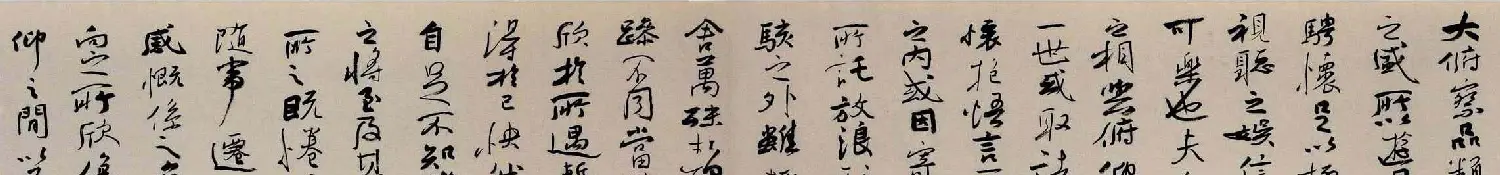 大俯察品類
之盛所以遊目
騁懷足以極
視聽之娛信
可樂也夫人
之相與俯仰
一世或取諸
懷抱悟言一
之內或因寄
所託放浪形
骸之外雖趣
舍萬殊靜
躁不同當
欣於所遇暫
得於己快然
自足不知
之將至及其
所之既惓
隨事遷
感慨係之矣
向之所欣俛
仰之間以